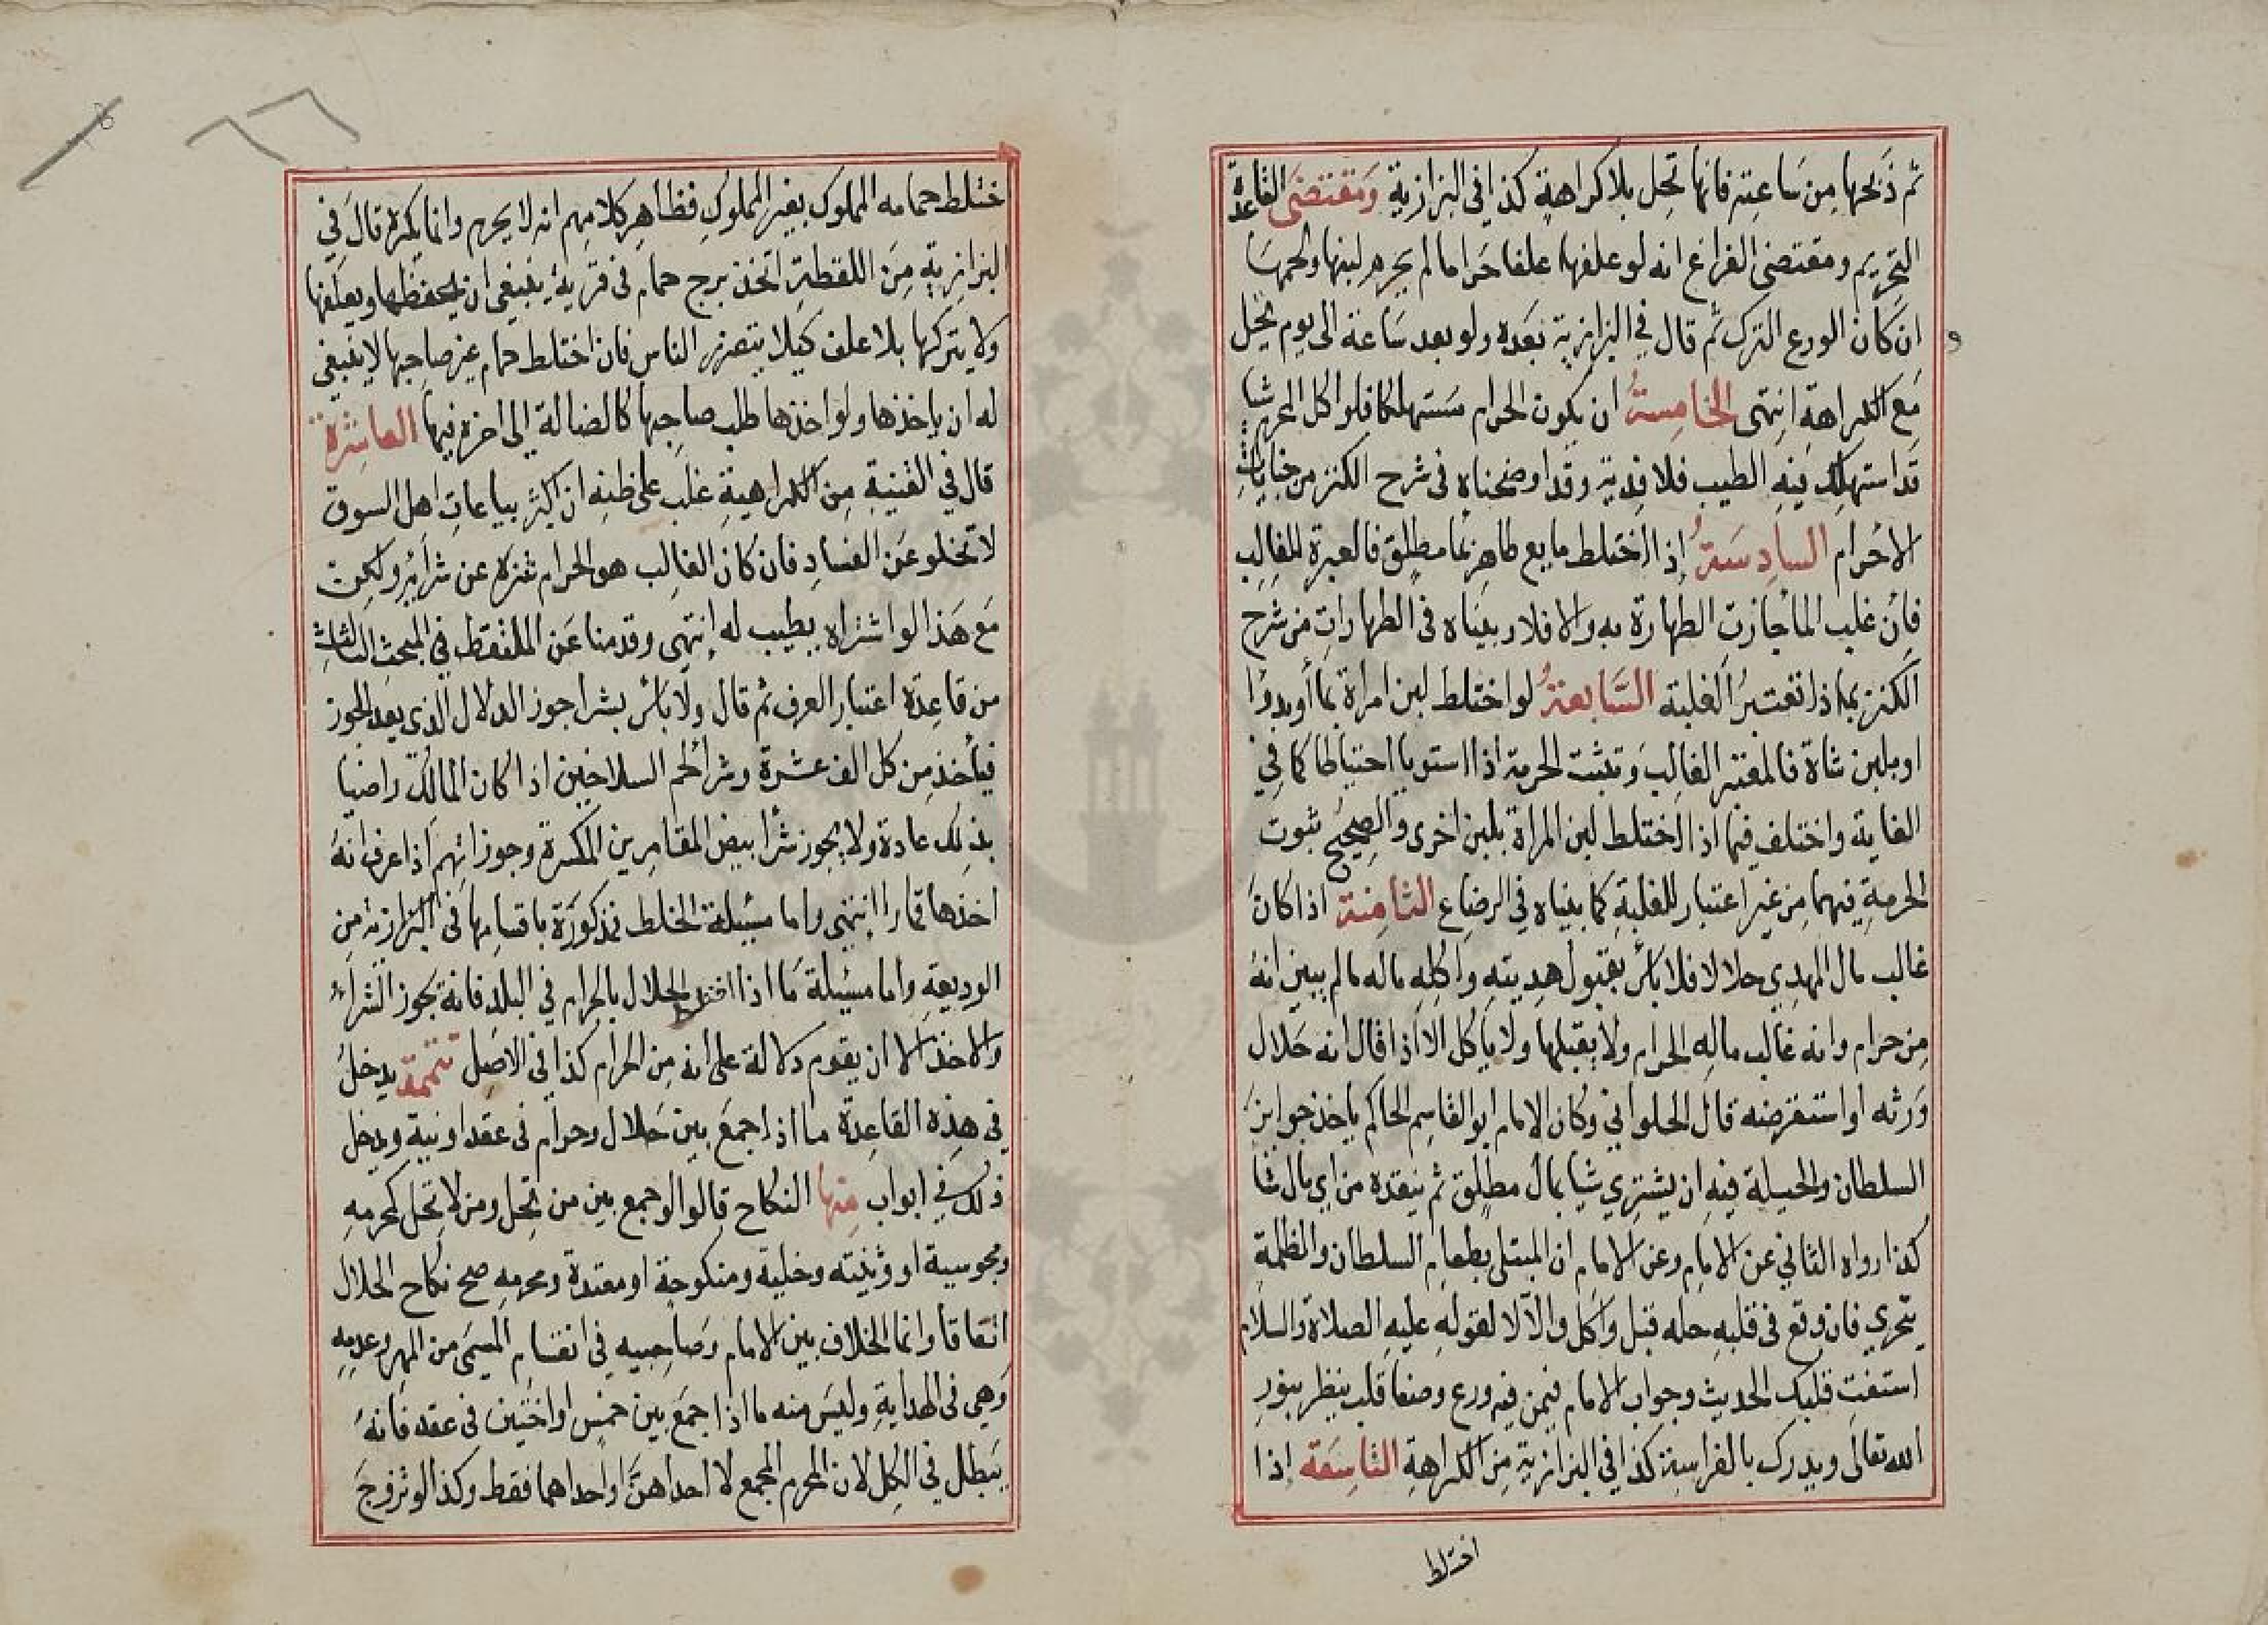 ثم ذبحها من ساعته فانها تحل بلا كراهة كذا في البزازية ومقتضى القاعدة
التحريم ومقتضى الفراغ انه لو علفها علفا حراما لم يحرم لبنها ولحمها
ان كان الورع الترك ثم قال في البزازية بعده ولو بعد ساعة الى يوم تحل
مع الكراهة انتهى الخامسة ان يكون الحرام مستهلكا فلو اكل المحرم شيا
قد استهلك فيه الطيب فلا فدية وقد اوضحناه في شرح الكنز من جنايات
الاحرام السادسة إذا اختلط مايع طاهر بما مطلق فالعبرة للغالب
فان غلب الما جازت الطهارة به والا فلا وبيناه في الطهارات من شرح
الكنز بماذا تعتبر الغلبة السابعة لو اختلط لبن امراة بما أو بدوا
او بلبن شاة فالمعتبر الغالب وتثبت الحرمة اذا استويا احتياطا كما في
الغاية واختلف فيما اذا اختلط لبن المراة بلبن اخرى والصحيح ثبوت
الحرمة فيهما من غير اعتبار للغلبة كما بيناه في الرضاع الثامنة اذا كان
غالب مال المهدي حلالا فلا بأس بقبول هديته واكله ماله مالم يبين انه
من حرام وانه غالب ماله الحرام ولا يقبلها ولا ياكل الا اذا قال انه حلال
ورثه او استقرضه قال الحلواني وكان الامام ابو القاسم الحاكم ياخذ جوايز
السلطان والحيلة فيه ان يشتري شيا بمال مطلق ثم ينقده من اي مال شا
كذا رواه الثاني عن الامام وعن الامام ان المبتلى بطعام السلطان والظلمة
يتحرى فان وقع في قلبه حله قبل واكل والا لا لقوله عليه الصلاة والسلام
استفت قلبك الحديث وجواب الامام فيمن فيه ورع وصفا قلب ينظر بنور
الله تعالى ويدرك بالفراسة كذا في البزازية من الكراهة التاسعة إذا
اختلط
اختلط حمامه المملوك بغير المملوك فظاهر كلامهم انه لا يحرم وانما يكره قال في
البزازية من اللقطة اتخذ برج حمام في قرية ينبغي ان يحفظها ويعلفها
ولا يتركها بلا علف كيلا يتضرر الناس فان اختلط حمام غير صاحبها لا ينبغي
له ان ياخذها ولو اخذها طلب صاحبها كالضالة الى اخره فيها العاشرة
قال في القنية من الكراهية غلب على ظنه ان اكثر بياعات اهل السوق
لا تخلو عن الفساد فان كان الغالب هو الحرام تنزه عن شرائه ولكن
مع هذا لو اشتراه يطيب له إنتهى وقدمنا عن الملتقط في المبحث الثالث
من قاعدة اعتبار العرف ثم قال ولا باس بشرا جوز الدلال الذي يعد الجوز
فيأخذ من كل الف عشرة وشرا لحم السلاخين اذا كان المالك راضيا
بذلك عادة ولا يجوز شرا بيض المقامرين المكسرة وجوزاتهم اذا عرف انه
اخذها قمارا إنتهى واما مسئلة الخلط فمذكورة باقسامها في البزازية من
الوديعة واما مسئلة ما اذا اختلط الحلال بالحرام في البلد فانه يجوز الشراء
والاخذ الا ان يقوم دلالة على انه من الحرام كذا في الاصل تتمة يدخل
في هذه القاعدة ما اذا جمع بين حلال وحرام في عقد او نية ويدخل
ذلك في ابواب منها النكاح قالوا لو جمع بين من تحل ومن لا تحل كمحرمه
ومجوسية او وثنيته وخلية ومنكوحة او معتدة ومحرمه صح نكاح الحلال
اتفاقا وانما الخلاف بين الامام وصاحبيه في انقسام المسمى من المهر وعدمه
وهي في الهداية وليس منه ما اذا جمع بين خمس او اختين في عقد فانه
يبطل في الكل لان المحرم الجمع لا احداهن او احداهما فقط وكذا لو تزوج